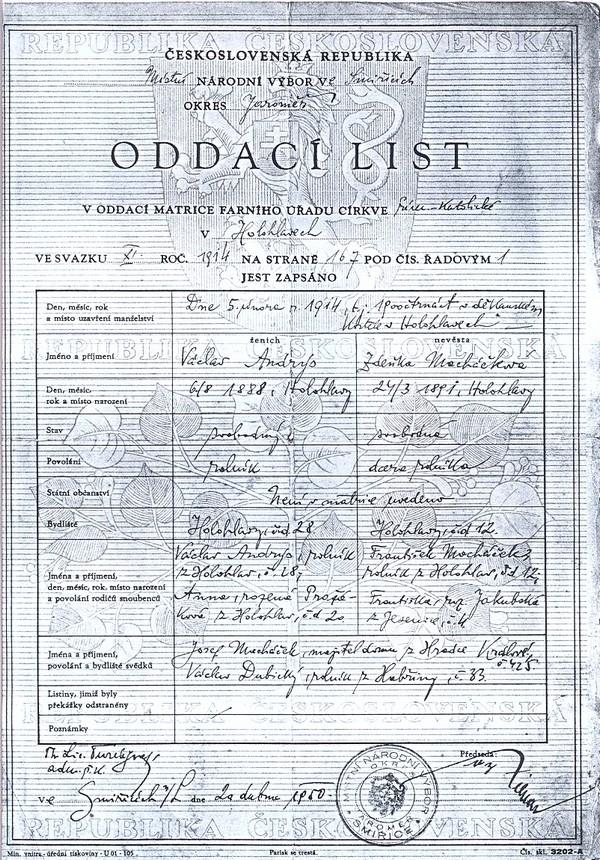 REPUBLIKA ČESKOSLOVENSKÁ
ČESKOSLOVENSKÁ REPUBLIKA
Místní NÁRODNÍ VÝBOR ve Smiřicích
OKRES Jaroměř
ODDACÍ LIST
V ODDACÍ MATRICE FARNÍHO ÚŘADU CÍRKVE římsko-katolické
V Holohlavech
VE SVAZKU XI. ROČ. 1914 NA STRANĚ 167 POD ČÍS. ŘADOVÝM 1
JEST ZAPSÁNO
Den, měsíc, rok
a místo uzavření manželství
Dne 5. února r. 1914, v děkanském
v Holohlavech
ženich nevěsta
Jméno a příjmení Václav Andrys Zdeňka Macháčkova
Den, měsíc,
rok a místo narození
6/8 1888, Holohlavy 24/3 1891, Holohlavy
REPUBLIKA ČESKOSLOVENSKÁ
Stav svobodný svobodná
Povolání rolník dcera rolníka
Státní občanství Není v matrice uvedeno
Bydliště Holohlavy, čd. 28 Holohlavy, čd 12.
Jména a příjmení,
den, měsíc, rok, místo narození
a povolání rodičů snoubenců
Václav Andrys, rolník František Macháček,
z Holohlav, č. 28, rolník z Holohlav, čd 12,
Anna, rozená Františka, roz. Jakubská
z Holohlav, čd z Jesenice, č.
Jména a příjmení,
povolání a bydliště svědků
Josef Macháček, majitel domu z Hradce Králové, č. 425
Václav Dubický, rolník z Habřiny, č. 33.
Listiny, jimiž byly
překážky odstraněny
REPUBLIKA ČESKOSLOVENSKÁ
Poznámky
Předseda:
MÍSTNÍ NÁRODNÍ VÝBOR
OKRES JAROMĚŘ
SMIŘICE
Ve Smiřicích n/L dne 20 dubna 1950.
REPUBLIKA ČESKOSLOVENSKÁ
Min. vnitra - úřední tiskoviny - U 01 - 105 Padělek se trestá. Čís. skl. 3202-A